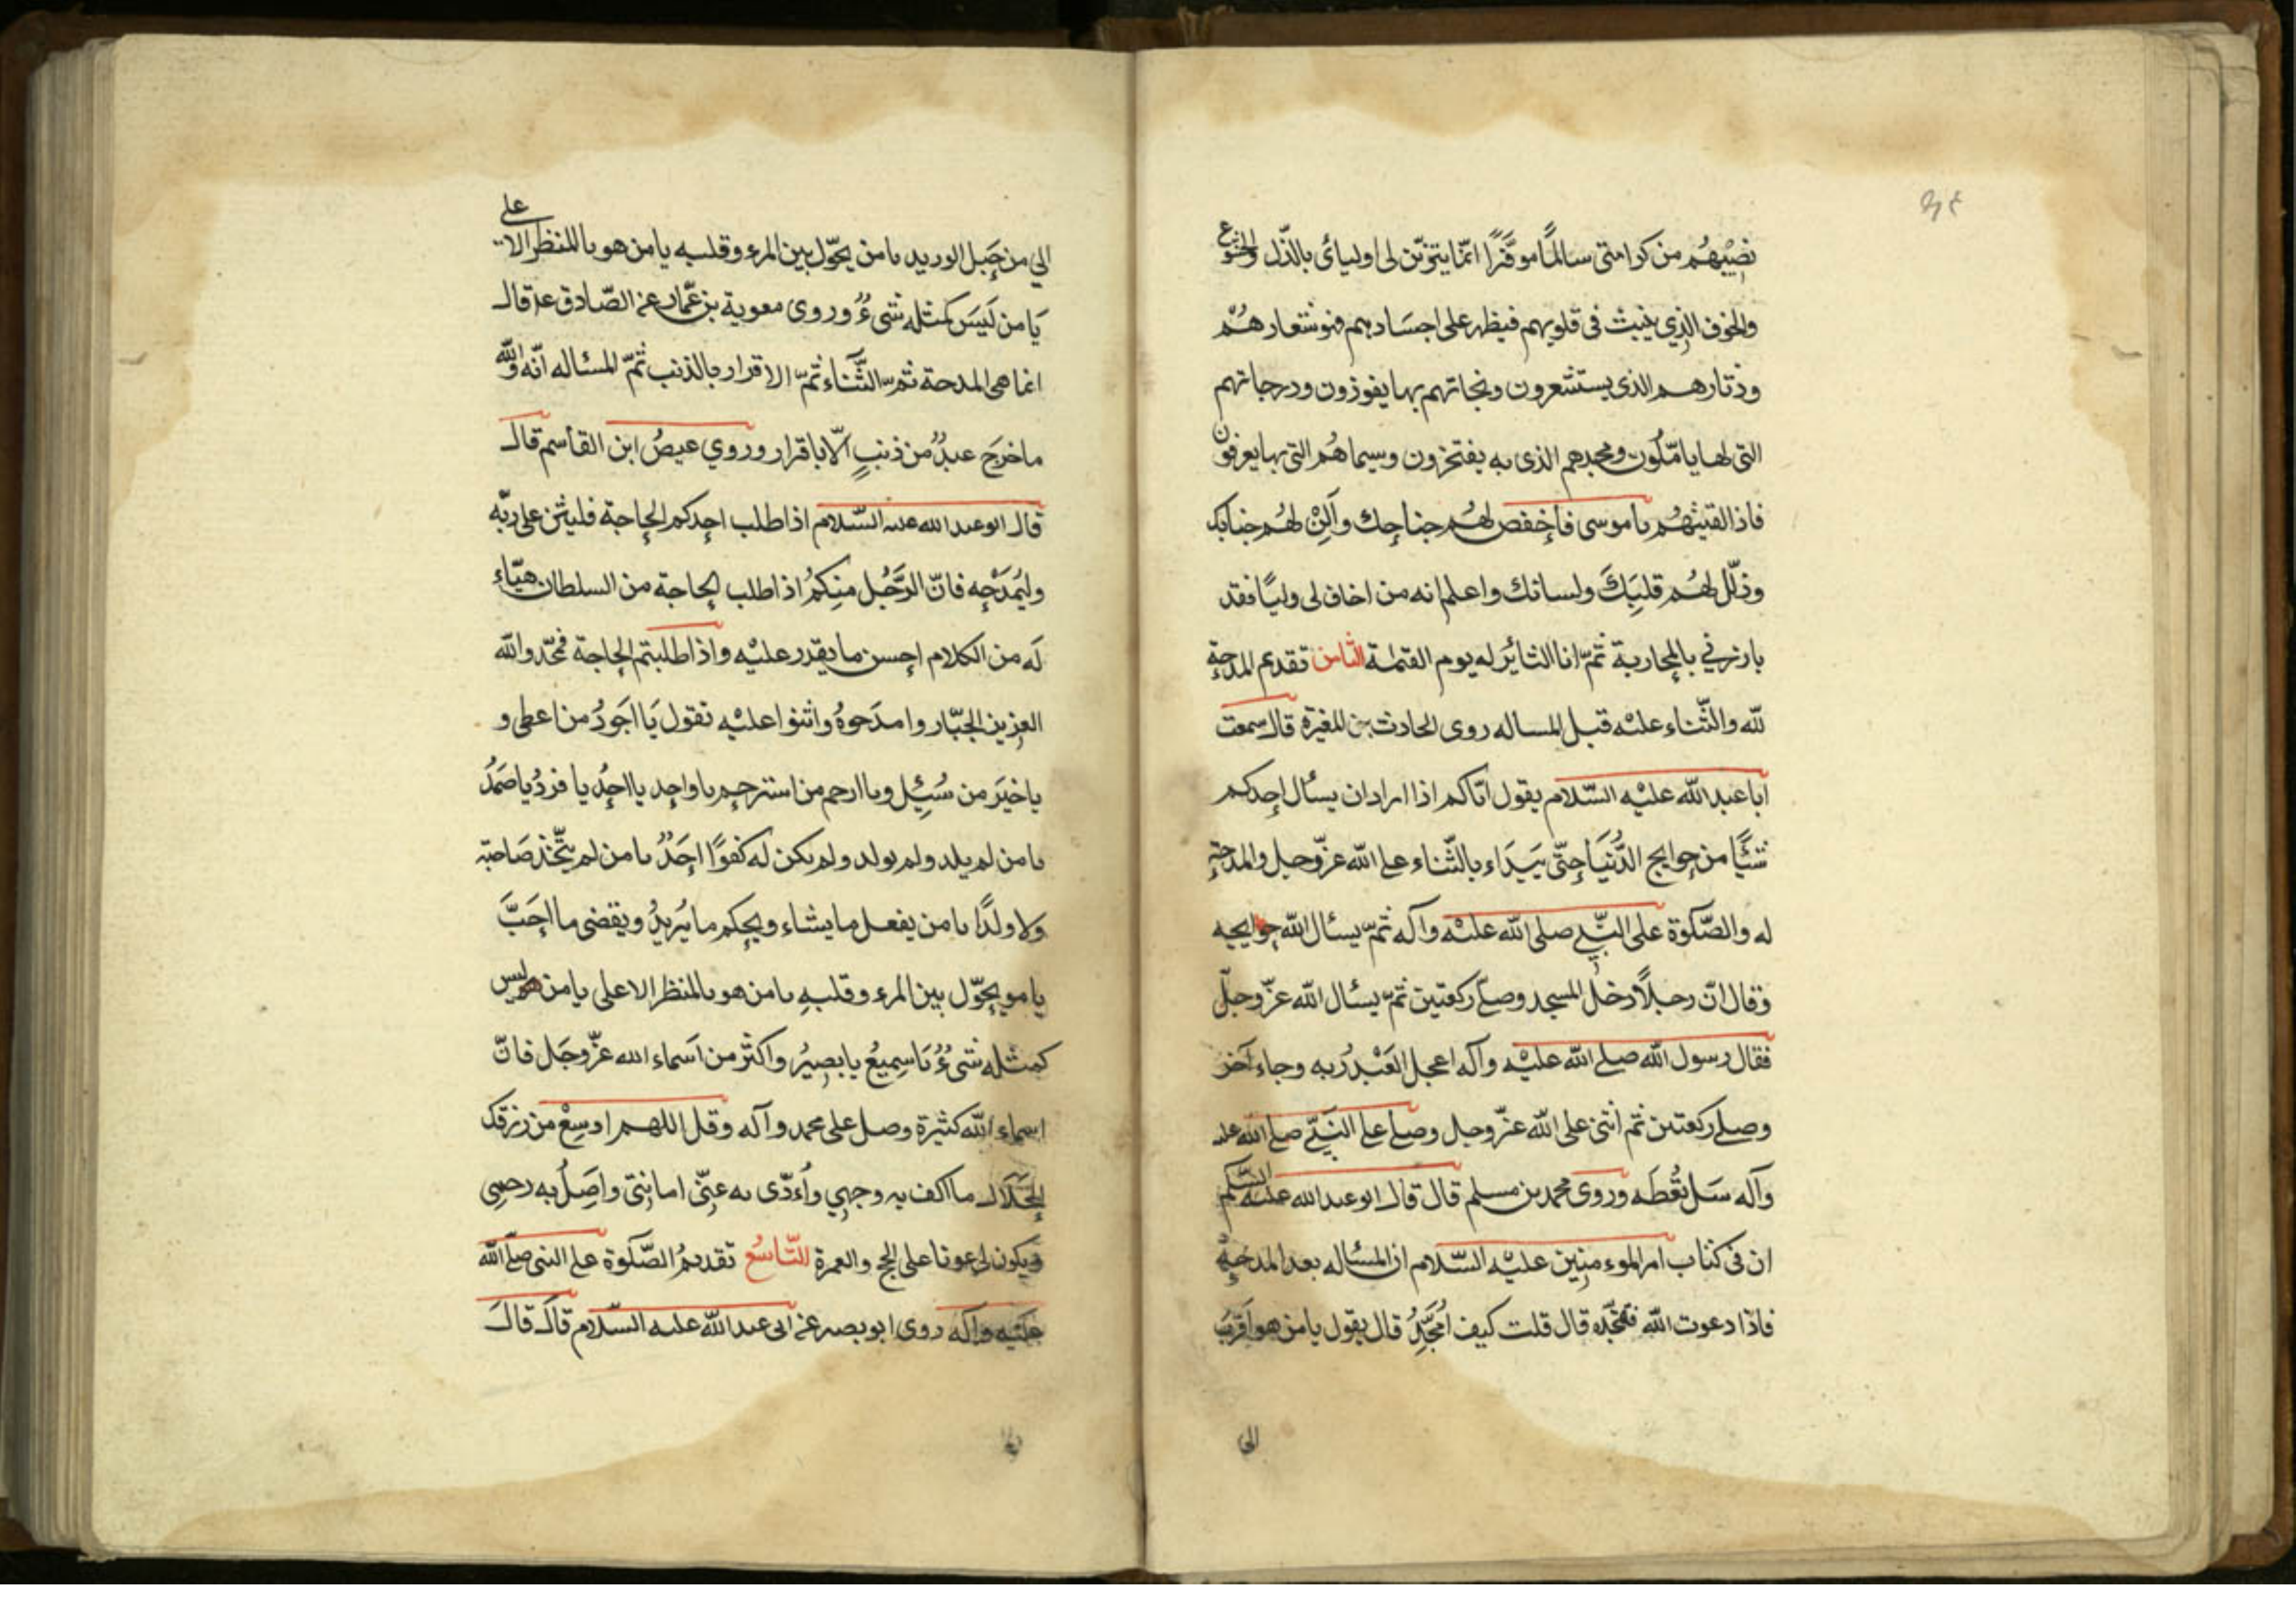 نصيبهم من كرامتى سالمًا موفّرًا انّما يتزيّن لى اوليائى بالذّل والخشوع
والخوف الذي ينبث فى قلوبهم فيظهر على اجسادهم فهو شعارهُمْ
ودثارهم الذى يستشعرون ونجاتهم بها يفوزون ودرجاتهم
التى لها يامّلون ومجدهم الذى به يفتخرون وسيماهُم التى بها يعرفون
فاذا لقيتهُم يا موسى فاخفض لهُم جناحك وأَلِنْ لهُم جنابك
وذلّل لهُم قلبَكَ ولسانك واعلم انه من اخاف لى وليًا فقد
بارزني بالمحاربة ثمّ انا الثائر له يوم القيمة الثامن تقديم المدحة
للّه والثّناء عليْه قبل المساله روى الحارث بن المغيرة قال سمعت
ابا عبد اللّه عليْه السّلام يقول ايّاكم اذا اراد ان يسأل احدكم
شيئًا من حوايج الدُّنيَا حتّى يَبدَاء بالثّناء على اللّه عزّ وجل والمدحة
له والصّلوة على النّبي صلى اللّه عليْه وآله ثمّ يسئال اللّه حوايجه
وقال انّ رجلًا دخل المسجد وصلّى ركعتين ثمّ يسئال اللّه عزّ وجلّ
فقال رسول اللّه صلى اللّه عليْه وآله اعجل العَبْدُ ربه وجاء آخر
وصلى ركعتين ثم اثنى على اللّه عزّ وجل وصلى على النَبيّ صلى اللّه عليه
وآله سَل تُعْطَه وروى محمد بن مسلم قال قال ابو عبد الله عليه السّلم
ان فى كتاب امير الموءمنين عليْه السّلام ان المسئاله بعد المدحةِ
فاذا دعوت اللّه فمجّده قال قلت كيف اُمَجِّدُ قال يقول يا من هو اَقرَبُ
الي
الي من حَبل الوريد يا من يحوّل بين المرء وقلبه يا من هو بالمنظر الاعلى
يَا من لَيسَ كمثله شىءٌ وروى معوية بن عمّار عن الصّادق ع قال
انما هى المدحة ثم الثَّناء ثمّ الاقرار بالذنب ثمّ المسئاله انّه واللّه
ما خرجَ عبدٌ من ذنبٍ اِلّا باقرار وروي عيصُ ابن القاسم قال
قال ابو عبد الله عليه السّلام اذا طلب احدكم الحاجة فليثن على ربّه
وليَمدَحْه فانّ الرَّجُل منكمُ اذا طلب الحاجة من السلطان هيّاء
لَه من الكلام احسن ما يقدر عليْه واذا طلبتم الحاجة فمجّدوا اللّه
العزيز الجبّار وامدَحوهُ واثنوا عليْه تقول يَا اجَودُ من اعطى و
يا خيَر من سُئِل ويا ارحم من استرحم يا واحد يا احدُ يا فردُ يا صَمَدُ
يا من لم يلد ولم يولد ولم يكن له كفوًا احَدٌ يا من لم يتّخذ صَاحبة
ولا ولدًا يا من يفعل ما يشاء ويحكم ما يُريدُ ويقضى ما احَبَّ
يا من يحوّل بين المرء وقلبهِ يا من هو بالمنظر الاعلى يا من ليس
كمثله شىءٌ يَا سميعُ يا بصيرُ واكثر من اَسماء الله عزّ وجَل فانّ
اسماء اللّه كثيرة وصل على محمد وآله وقل اللهم اوسِعْ من رزقك
الحَلَال ما اكف به وجهي واُءدّى به عنّى امانتى واَصِلُ به رحمى
ويكون لى عونا على الحج والعمرة التّاسعُ تقديمُ الصّلوة على النبى صلّى اللّه
عليْه وآله روى ابو بصير عن ابى عبد اللّه عليه السّلام قاَل قالَ